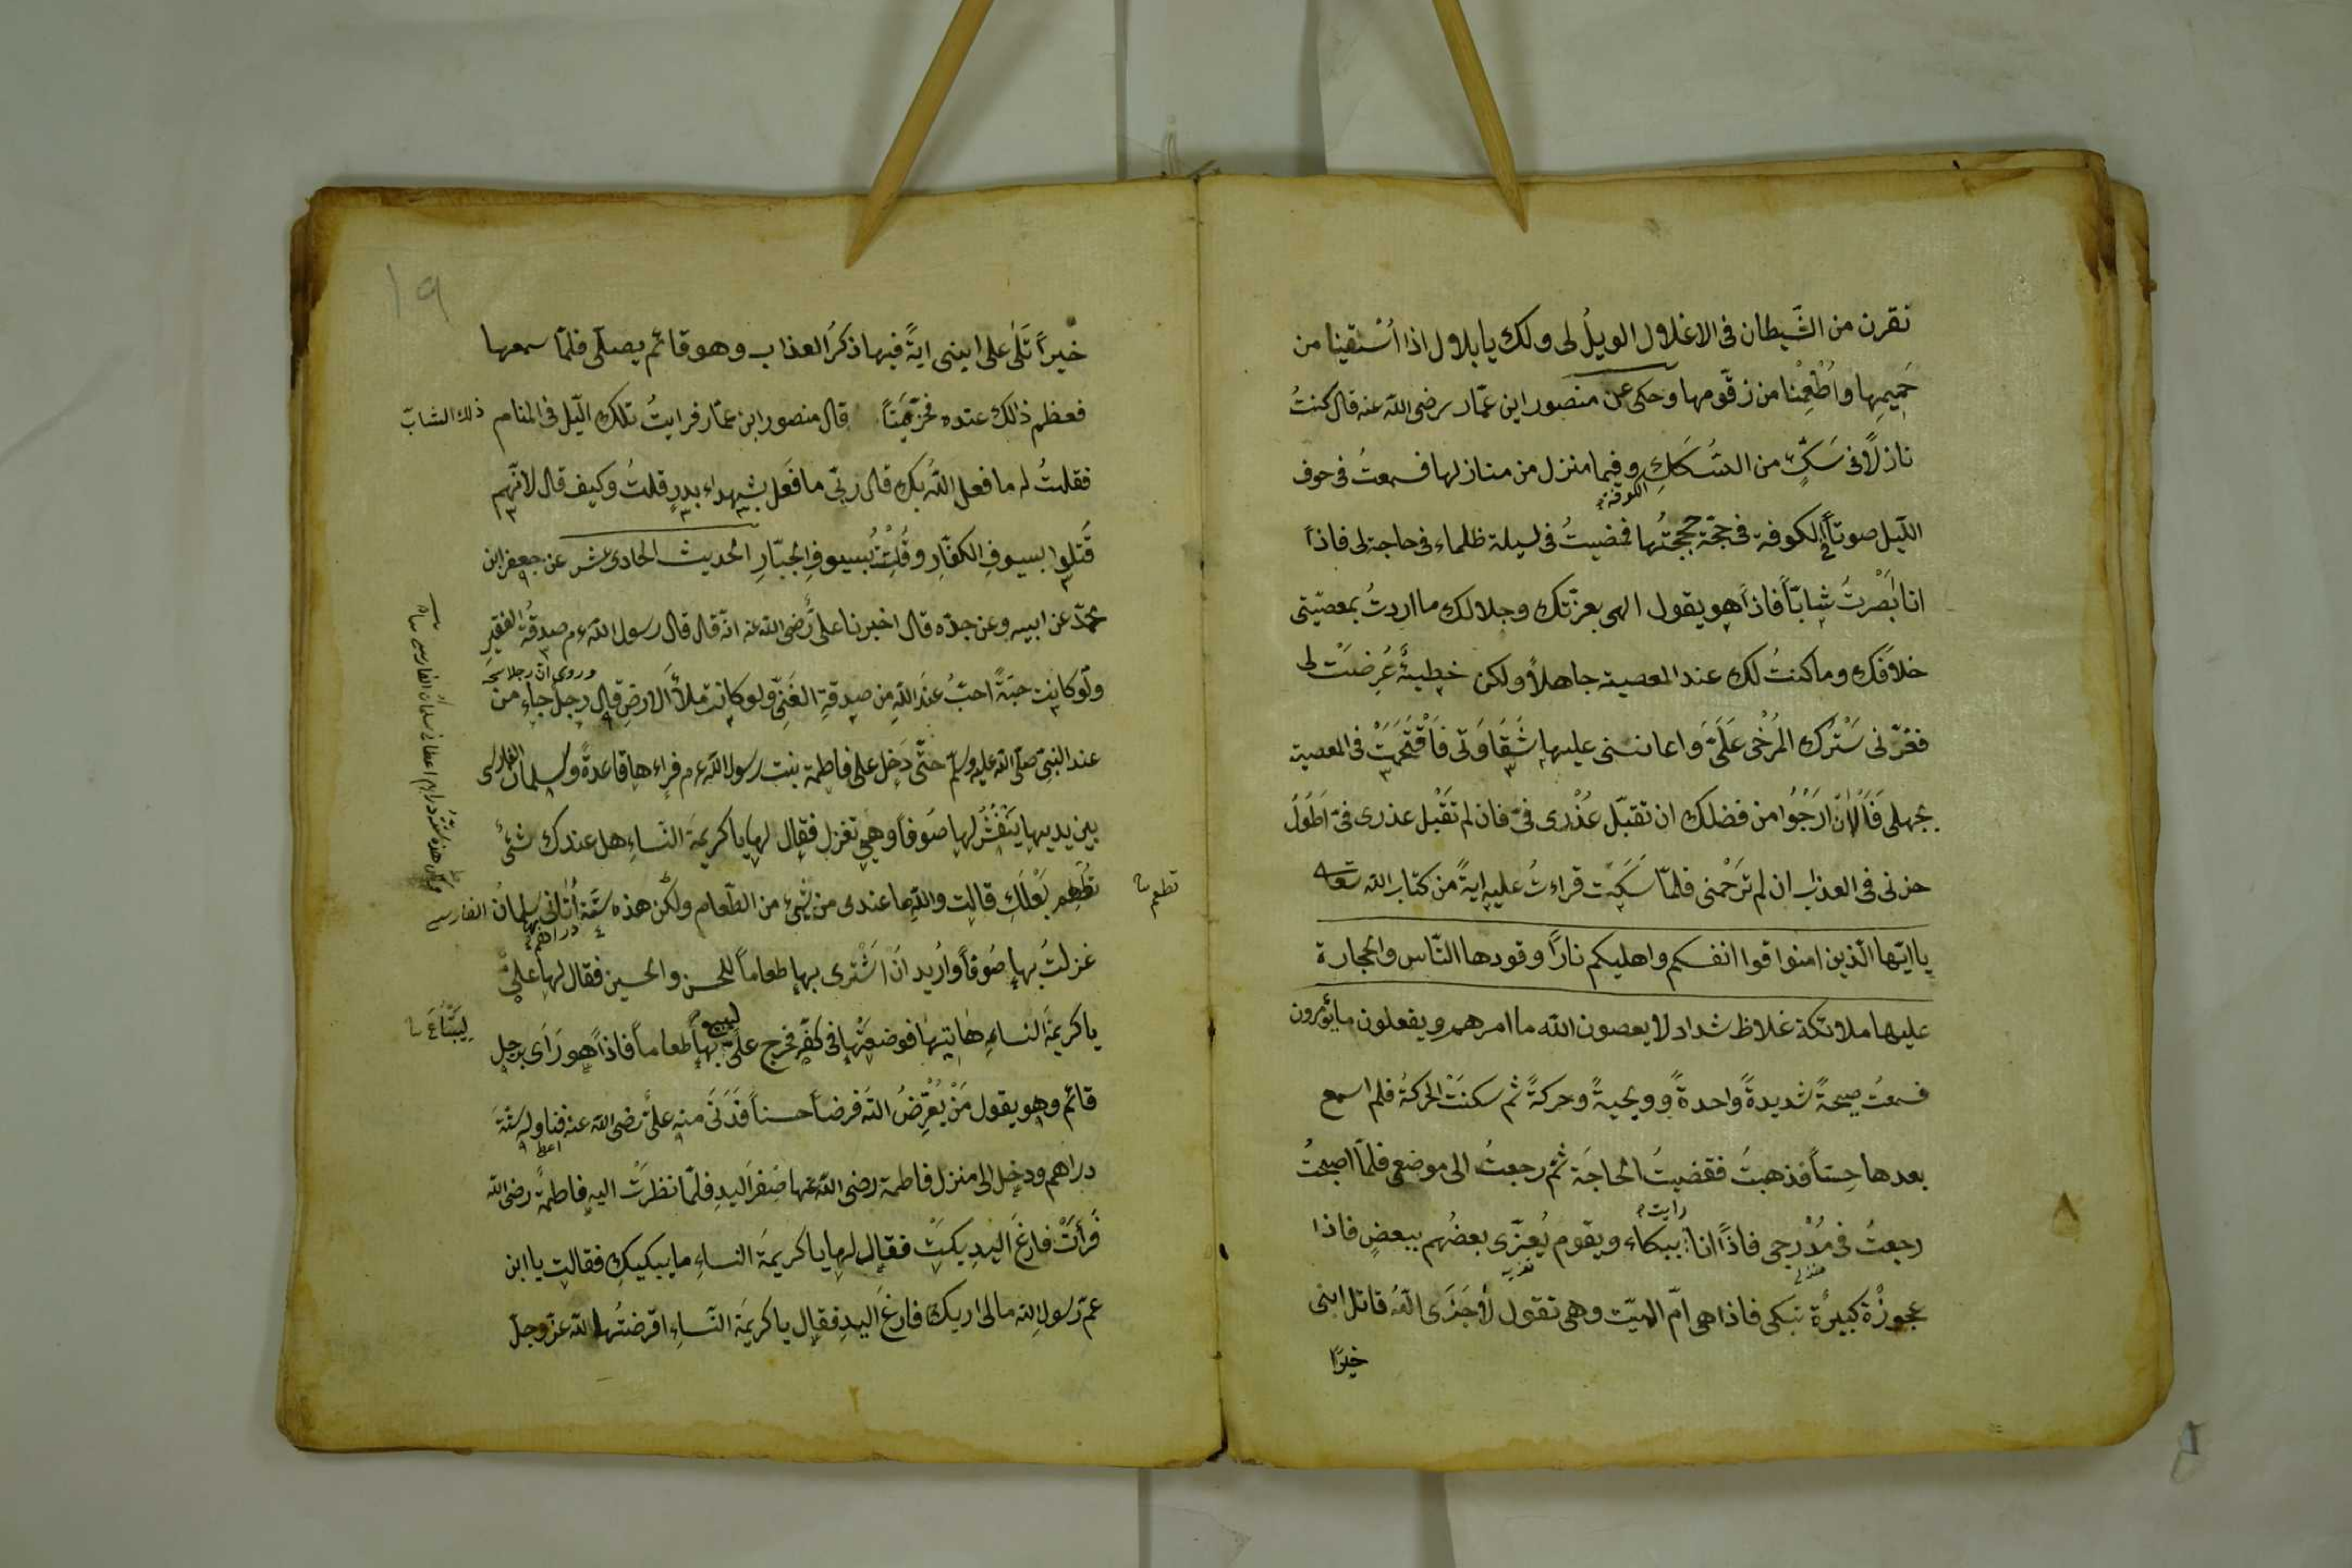 نقرن من الشّيطان فى الاغلال الويلُ لى ولك يا بلاول اذا اُسْتقينا من
حَمِيمِها واُطْعِمْنا من زقّومها وحكى عن منصور ابن عمّار رضى الله عنه قال كنتُ
نازلاً فى سَكّةٍ من السّكَكِ وفيها منزل من منازلها فسمعتُ فى جوف
الكوفة
اللّيل صوتاً فى الكوفة فى حجّة حججتُها فمضيتُ فى ليلة ظلماء فى حاجة لى فاذا
انا بَصْرتُ شابّاً فاذا هو يقول الهى بعزّتك وجلالك ما اردتُ بمعصيّتى
خلافَك وما كنتُ لك عند المعصية جاهلاً ولكن خطيئةً عُرِضَتْ لى
فغرّنى سَتْرُك المُرْخٰى عَلَىَّ واعاننى عليها شَقَاوَتى فَاَقْتَحَمَتْ فى المعصية
بجهلى فَاَلْاٰنَ اَرْجُوا من فضلك ان تقبّل عُذْرى فىَّ فان لم تَقْبل عذرى فىّ اَطوَلُ
حزنى فى العذاب ان لم ترَحْمنى فلمّا سَكَتَ قراءتُ عليه ايةً من كتاب الله تعا
يا ايّها الّذين امنوا قوا انفسكم واهليكم نارًا وقودها النّاس والحجارة
عليها ملائكة غلاظ شداد لا يعصون الله ما امرهم ويفعلون ما يؤمرون
فسمعتُ صيحةً شديدةً واحدةً وويحيةً وحركةً ثم سكنَتْ الحركةُ فلم اسمع
بعدها حِسّاً فذهبتُ فقضيتُ الحاجَة ثمّ رجعتُ الى موضعى فلمّا اصبحتُ
رايت
رجعتُ فى مُدْرجى فاذًا انا ببكاء وبقوم يُعزّى بعضُهم ببعضٍ فاذا
عجوزُة كبيرٌة تبكى فاذا هى امّ الميّت وهى تقول لا جَزَى اللهُ قاتل ابنى
خيرًا
١٩
خيراً تَلٰى على ابنى ايةً فيها ذكرُ العذاب وهو قائم يصلّى فلمّا سمعها
فعظم ذالك عنده فخرّ مَيّتاً قال منصور ابن عمّار فرايتُ تلك اللّيل فى المنام ذلك الشابّ
فقلتُ له ما فعل اللهُ بك قال ربّى ما فَعَل بشهداء بدرٍ قلتُ وكيف قال لانّهم
قُتلوا بسيوفِ الكفّارِ وقُتِلْتُ بُسيوفِ الجبّارِ الحديث الحادى عشر عن جعفر ابن
محمّد عن ابيه وعن جدّه قال اخبرنا علىٌّ رضى الله عنه انّه قال قال رسول الله ءم صدقةُ الفقير
وروى انّ رجلا
ولو كانت حبّةً احبّ عند اللهِ من صدقةِ الغَنىِّ ولو كانت ملأَ الارضِ قال رجلٌ جاء من
عند النبىّ صلّى الله عليه وسلّم حتّى دَخل على فاطمة بنت رسول الله ءم فراءها قاعدةً وسلمان الفارسى
بين يديها يَنْفُشُ لها صُوفاً وهى تغزل فقال لها يا كريمةَ النّساءِ هل عندك شئٌ
تطعِم بَعْلَكِ قالت واللهِ ما عندى من شىءٍ من الطّعام ولكن هذه ستّة اَتانى بها سلمانُ الفارسى
تطعم
دراهم
غزلتُ بها صُوفاً واُريد ان اشْترى بها طعاماً للحسن والحسين فقال لها علىٌّ
يا كريمةَ النساءِ هاتيها فوضعَتْها فى كفّه فخرج علىّ ليبيع بها طعاماً فاذاً هو رَاَى برجل
لِيَبْتَاعَ
قائم وهو يقول مَنْ يُقْرِضُ اللهَ قرضاً حسناً فَدَنَى منه علىٌّ رضى الله عنه فناوله ستّةَ
اعطا
دراهم ودخل الى منزل فاطمة رضى الله عنها صَفرَ اليدِ فلمّا نظرَتْ اليه فاطمةُ رضى الله
فَرَأَتْ فارغَ اليدِ بكتْ فقال لها يا كريمةَ النساءِ ما يبكيكِ فقالت يا ابن
عمّ رسولِ الله ما لى اريك فارغَ اليدِ فقال يا كريمَة النّساءِ اقرضتُها لله عزّ وجلّ